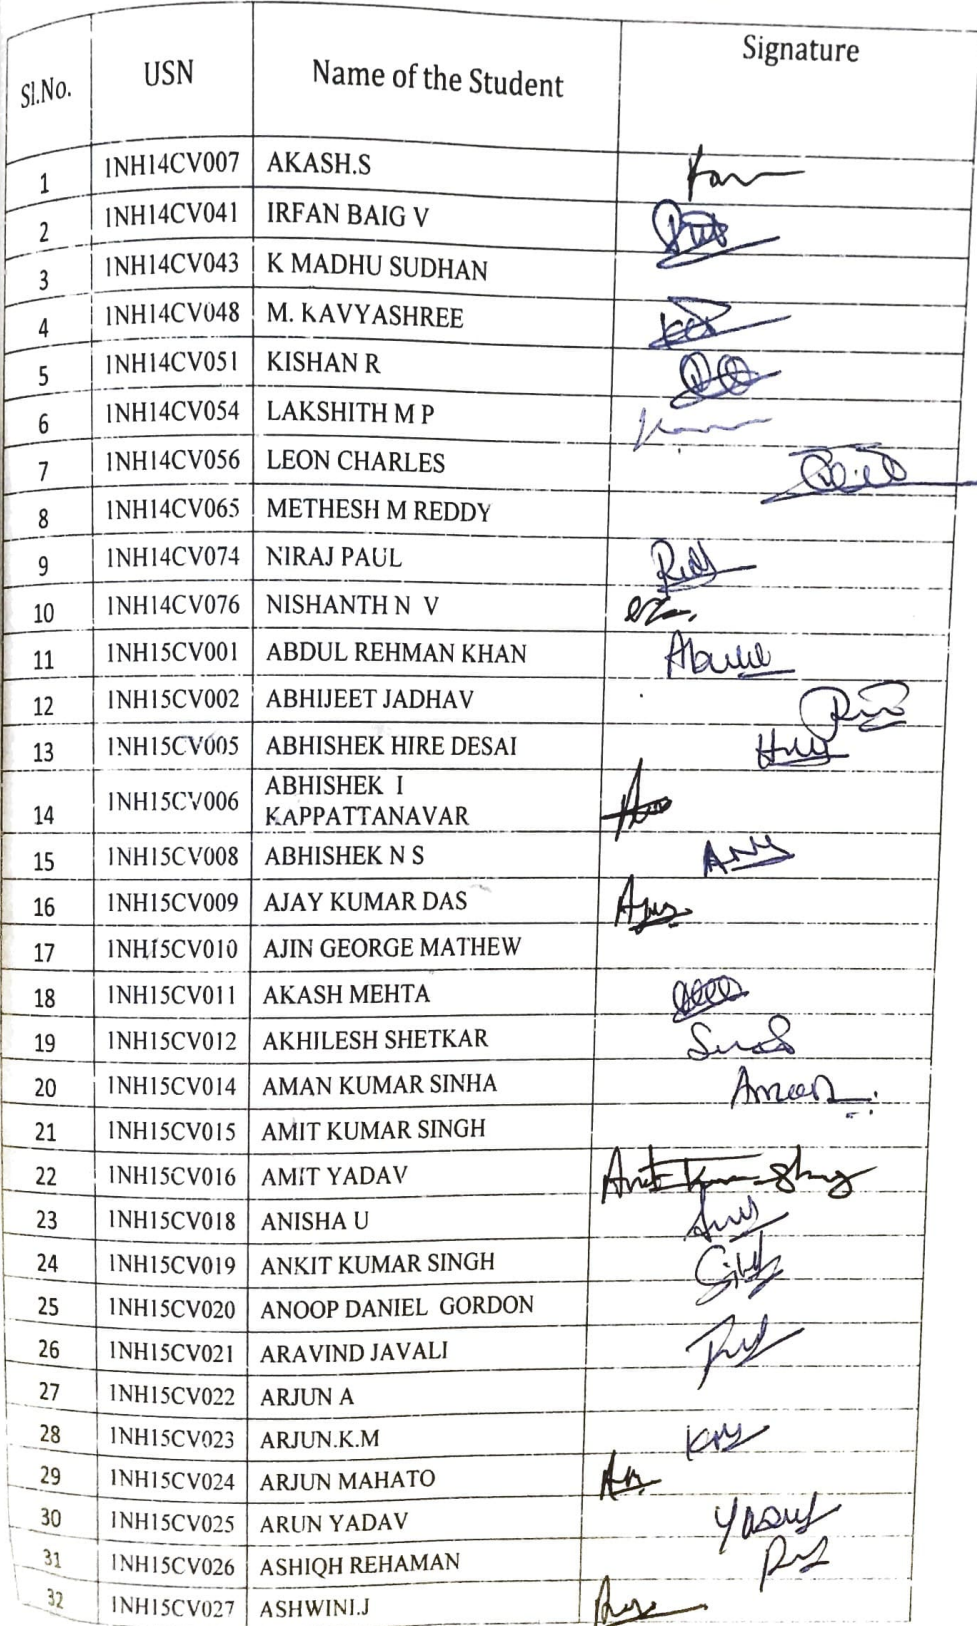 Sl.No. USN Name of the Student Signature
1 1NH14CV007 AKASH.S
2 1NH14CV041 IRFAN BAIG V
3 1NH14CV043 K MADHU SUDHAN
4 1NH14CV048 M. KAVYASHREE
5 1NH14CV051 KISHAN R
6 1NH14CV054 LAKSHITH M P
7 1NH14CV056 LEON CHARLES
8 1NH14CV065 METHESH M REDDY
9 1NH14CV074 NIRAJ PAUL
10 1NH14CV076 NISHANTH N V
11 1NH15CV001 ABDUL REHMAN KHAN
12 1NH15CV002 ABHIJEET JADHAV
13 1NH15CV005 ABHISHEK HIRE DESAI
14 1NH15CV006 ABHISHEK I
KAPPATTANAVAR
15 1NH15CV008 ABHISHEK N S
16 1NH15CV009 AJAY KUMAR DAS
17 1NH15CV010 AJIN GEORGE MATHEW
18 1NH15CV011 AKASH MEHTA
19 1NH15CV012 AKHILESH SHETKAR
20 1NH15CV014 AMAN KUMAR SINHA
21 1NH15CV015 AMIT KUMAR SINGH
22 1NH15CV016 AMIT YADAV
23 1NH15CV018 ANISHA U
24 1NH15CV019 ANKIT KUMAR SINGH
25 1NH15CV020 ANOOP DANIEL GORDON
26 1NH15CV021 ARAVIND JAVALI
27 1NH15CV022 ARJUN A
28 1NH15CV023 ARJUN.K.M
29 1NH15CV024 ARJUN MAHATO
30 1NH15CV025 ARUN YADAV
31 1NH15CV026 ASHIQH REHAMAN
32 1NH15CV027 ASHWINI.J